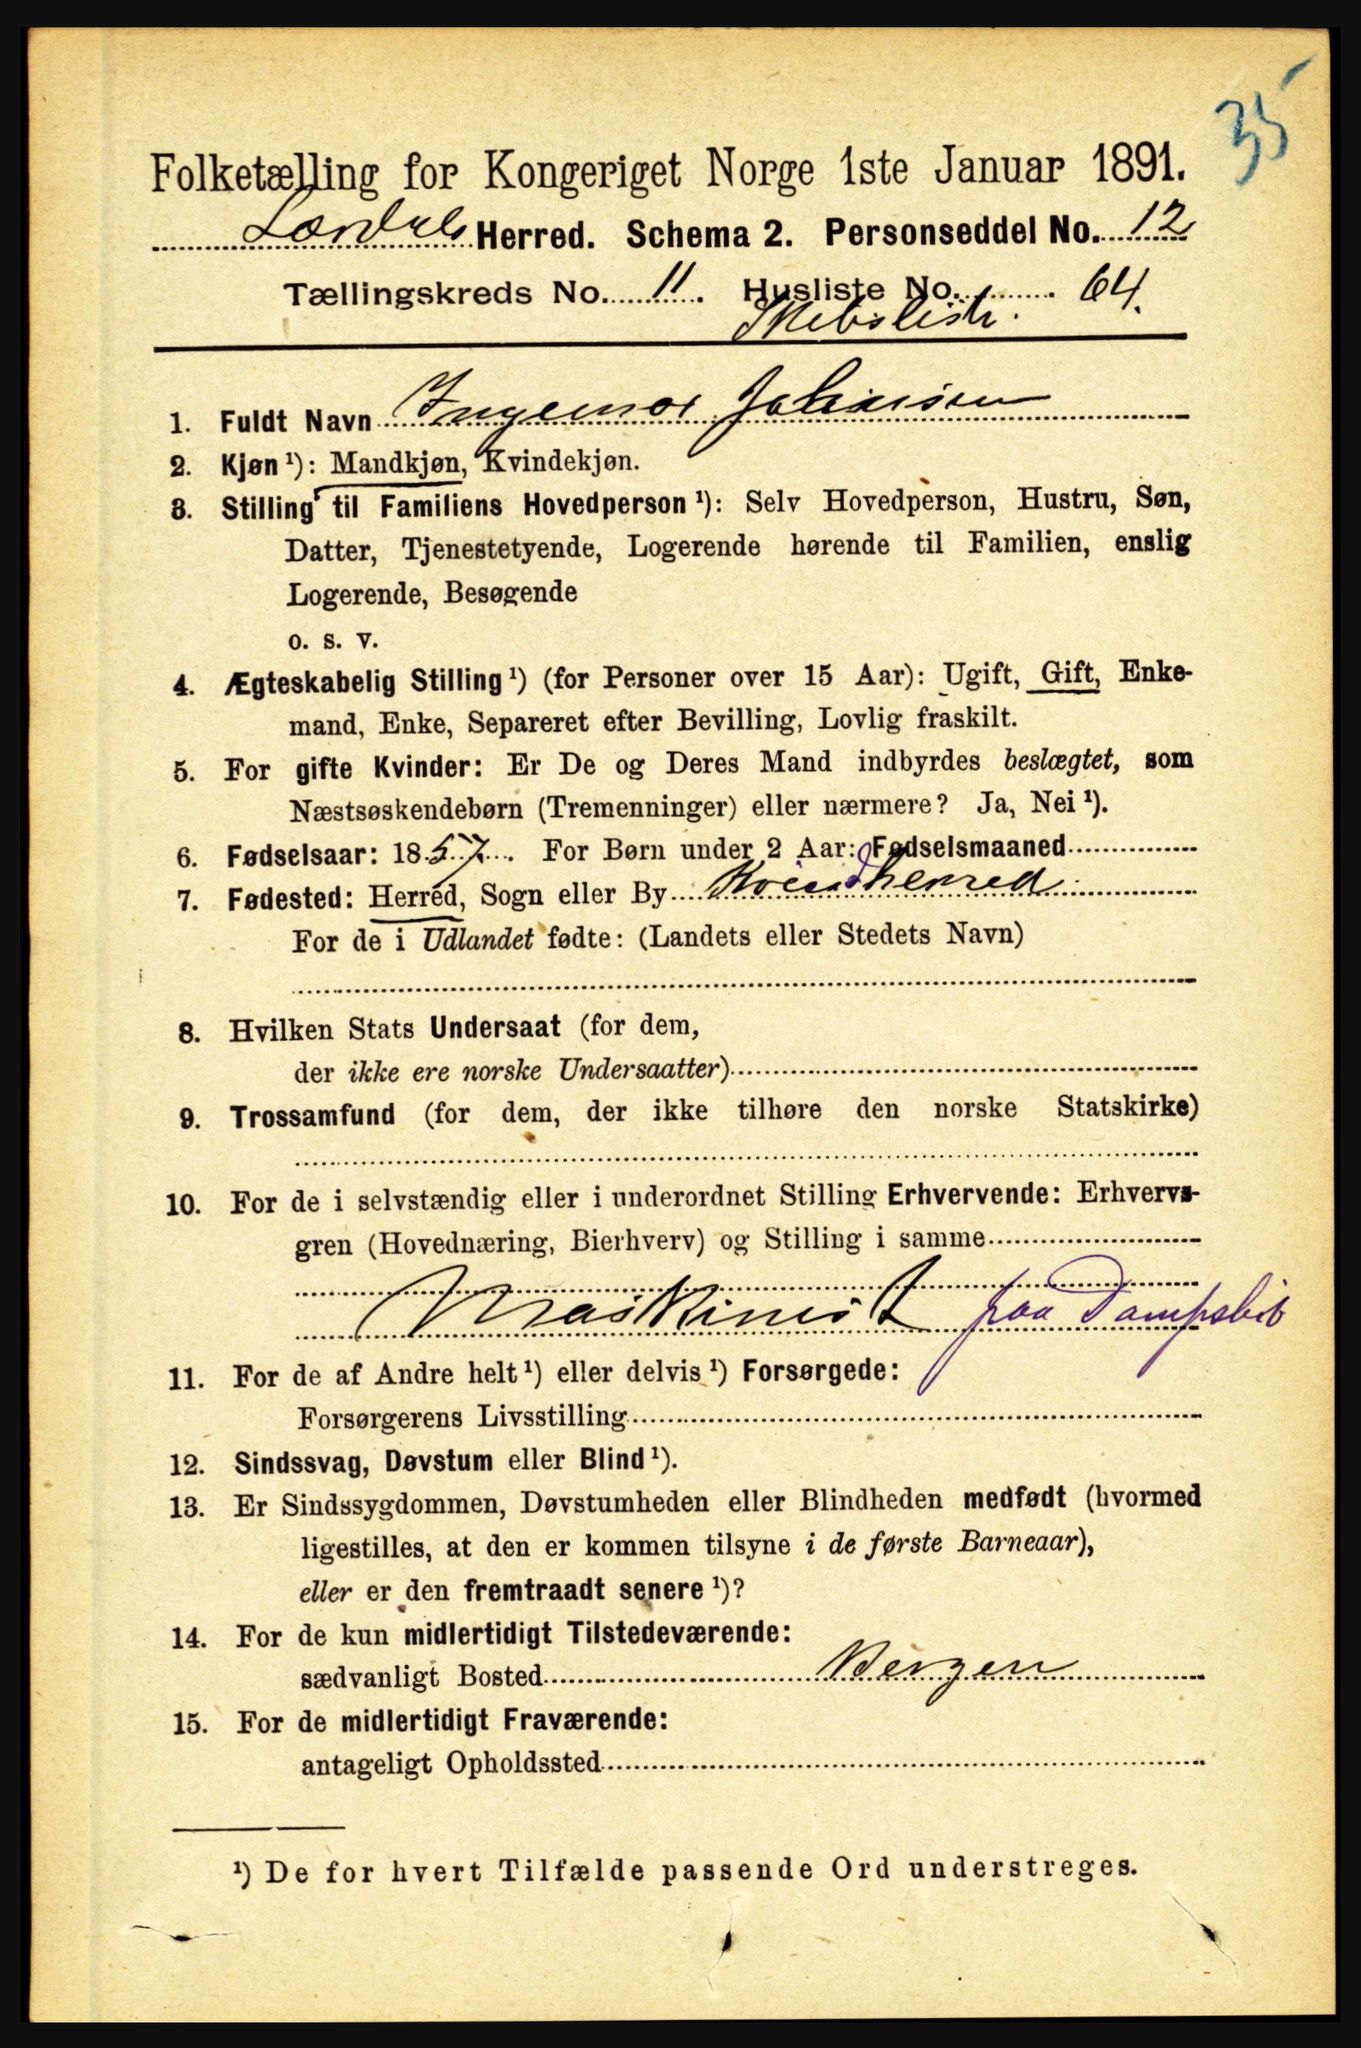 35
Folketælling for Kongeriget Norge 1ste Januar 1891.
Lærdals Herred. Schema 2. Personseddel No. 12
Tællingskreds No. 11. Husliste No. 64.
Skibsliste.
1. Fuldt Navn Ingemar Johansen
2. Kjøn¹): Mandkjøn, Kvindekjøn.
3. Stilling til Familiens Hovedperson¹): Selv Hovedperson, Hustru, Søn,
Datter, Tjenestetyende, Logerende hørende til Familien, enslig
Logerende, Besøgende
o. s. v.
4. Ægteskabelig Stilling¹) (for Personer over 15 Aar): Ugift, Gift, Enke-
mand, Enke, Separeret efter Bevilling, Lovlig fraskilt.
5. For gifte Kvinder: Er De og Deres Mand indbyrdes beslægtet, som
Næstsøskendebørn (Tremenninger) eller nærmere? Ja, Nei¹).
6. Fødselsaar: 1857. For Børn under 2 Aar: Fødselsmaaned
7. Fødested: Herred, Sogn eller By Kvindherred
For de i Udlandet fødte: (Landets eller Stedets Navn)
8. Hvilken Stats Undersaat (for dem,
der ikke ere norske Undersaatter)
9. Trossamfund (for dem, der ikke tilhøre den norske Statskirke)
10. For de i selvstændig eller i underordnet Stilling Erhvervende: Erhvervs-
gren (Hovednæring, Bierhverv) og Stilling i samme
Maskinist paa Dampskib
11. For de af Andre helt¹) eller delvis¹) Forsørgede:
Forsørgerens Livsstilling
12. Sindssvag, Døvstum eller Blind¹).
13. Er Sindssygdommen, Døvstumheden eller Blindheden medfødt (hvormed
ligestilles, at den er kommen tilsyne i de første Barneaar),
eller er den fremtraadt senere¹)?
14. For de kun midlertidigt Tilstedeværende:
sædvanligt Bosted Bergen
15. For de midlertidigt Fraværende:
antageligt Opholdssted
¹) De for hvert Tilfælde passende Ord understreges.